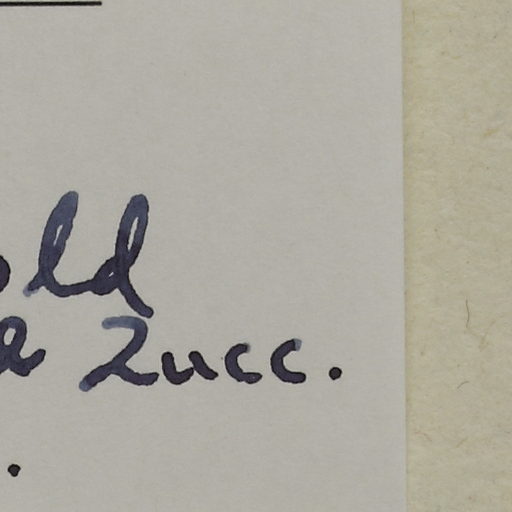 old
a Zucc.
.